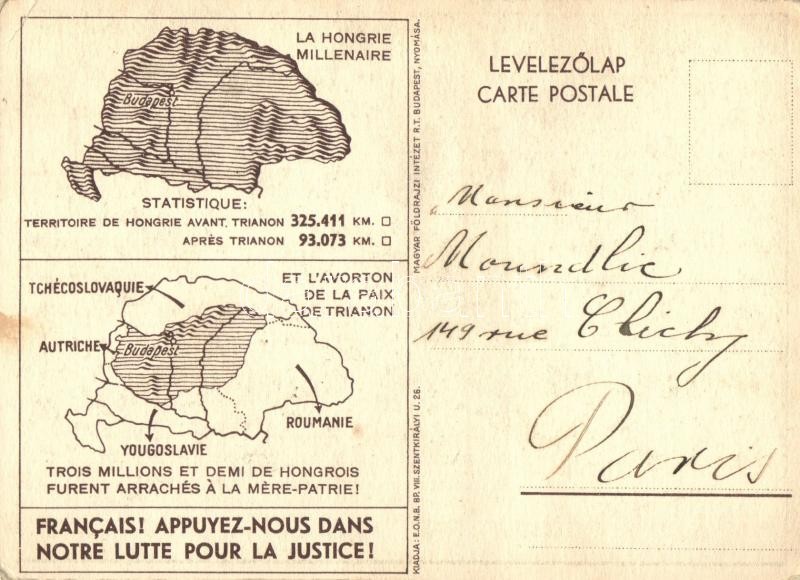 LA HONGRIE
MILLENAIRE
Budapest
STATISTIQUE:
TERRITOIRE DE HONGRIE AVANT TRIANON 325.411 KM. □
APRÈS TRIANON 93.073 KM. □
ET L'AVORTON
DE LA PAIX
DE TRIANON
TCHÉCOSLOVAQUIE
AUTRICHE
Budapest
ROUMANIE
YOUGOSLAVIE
TROIS MILLIONS ET DEMI DE HONGROIS
FURENT ARRACHÉS À LA MÈRE-PATRIE!
FRANÇAIS! APPUYEZ-NOUS DANS
NOTRE LUTTE POUR LA JUSTICE!
MAGYAR FÖLDRAJZI INTÉZET R.T. BUDAPEST, NYOMÁSA.
KIADJA: E.O.N.B. BP. VIII. SZENTKIRÁLYI U. 26.
LEVELEZŐLAP
CARTE POSTALE
Monsieur
Moundlic
149 rue Clichy
Paris